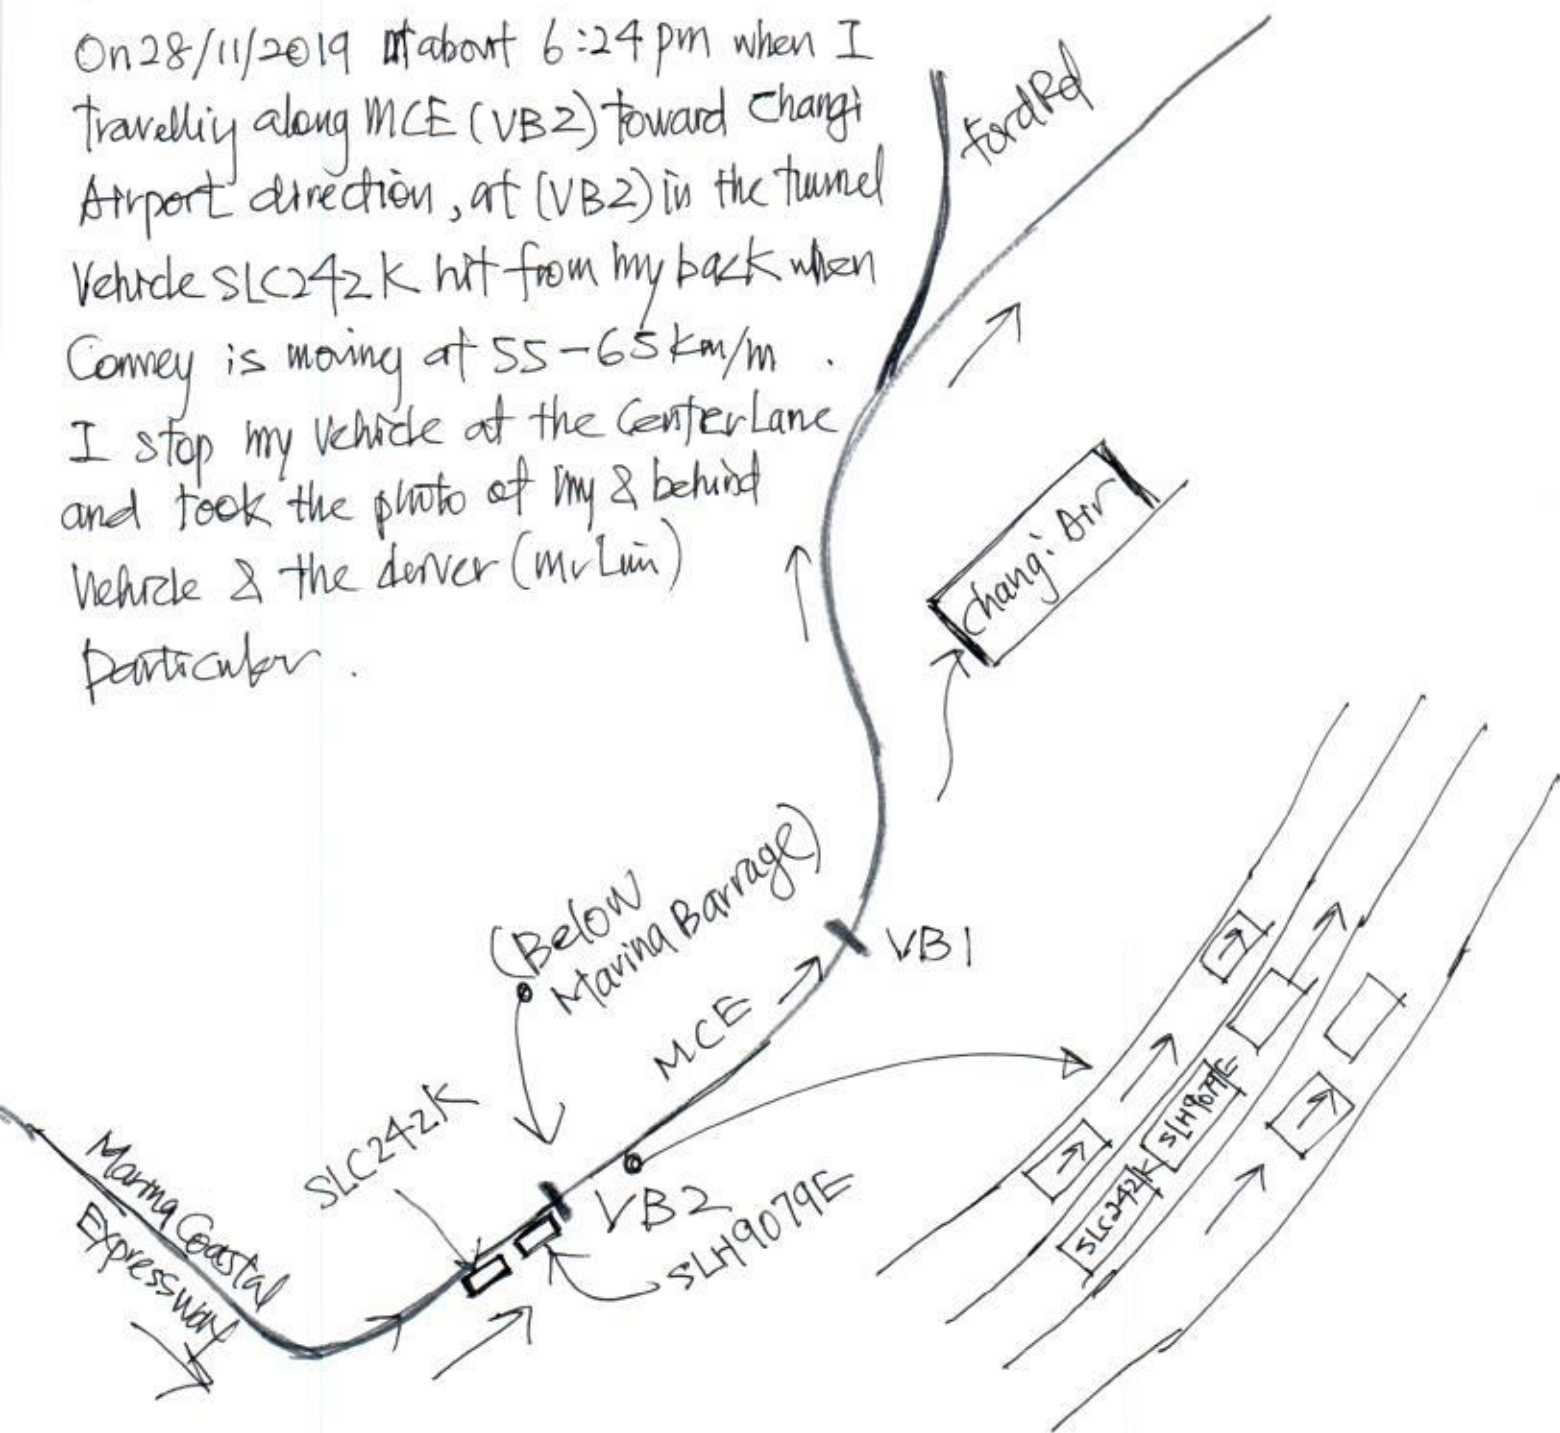 On 28/11/2019 at about 6:24pm when I
travelliy along MCE (VB2) toward Changi
Airport direction, at (VB2) in the tunnel
Vehicle SLC242K hit from my back when
Conney is moving at 55-65km/m.
I stop my vehicle at the Center Lane
and took the photo of my & behind
Vehicle & the deiver (Mr Lim)
particular.
ford Rd
Changi Air
(Below
Marina Barrage)
VB1
MCE
SLC242K
VB2
SLH9079E
Marina Coastal
Expressway
SLH9079E
SLC242K